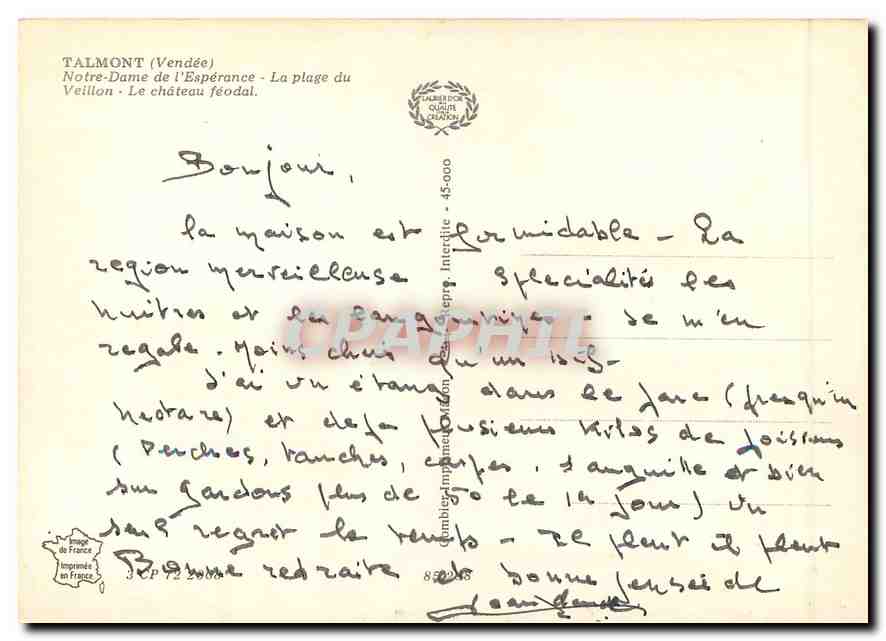 TALMONT (Vendée)
Notre-Dame de l'Espérance - La plage du
Veillon - Le château féodal.
LAURIER D'OR
DE LA
QUALITÉ
CRÉATION
Bonjour,
la maison est formidable - La
region merveilleuse - Specialités les
huitres et les langoustines - Je m'en
regale. Moins cher qu'un
J'ai un étang dans le parc (presqu'un
hectare) et deja plusieurs kilos de poissons
(Perches, tanches, carpes, 1 anguille et bien
sur gardons plus de 50 le 1er jour) un
seul regret le temps - Il pleut il pleut
Bonne retraite et bonne pensée de
Combier Imprimeur Mâcon Repro. Interdite - 45-000
CPAPHIL
Image
de France
Imprimée
en France
3 CP 72 2068